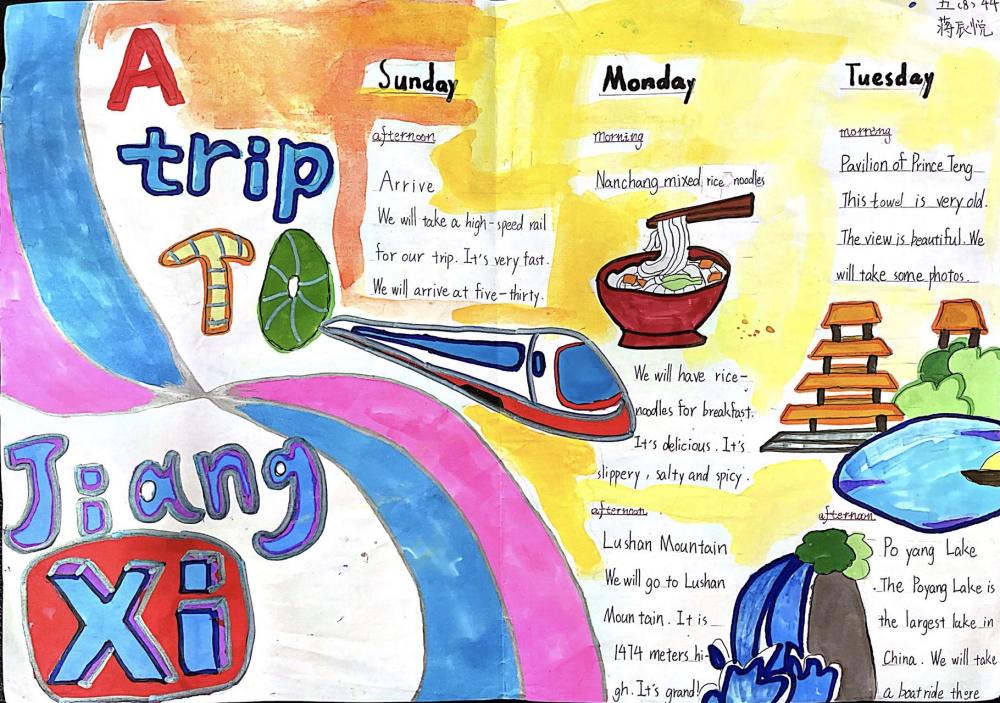 五(8) 44
蒋辰悦
A
trip
To
Jiang
Xi
Sunday
afternoon
Arrive
We will take a high-speed rail
for our trip. It's very fast.
We will arrive at five-thirty.
Monday
morning
Nanchang mixed rice noodles
We will have rice-
noodles for breakfast.
It's delicious. It's
slippery, salty and spicy.
afternoon
Lushan Mountain
We will go to Lushan
Mountain. It is
1474 meters hi-
gh. It's grand!
Tuesday
morning
Pavilion of Prince Teng
This towel is very old.
The view is beautiful. We
will take some photos.
afternoon
Po yang Lake
The Poyang Lake is
the largest lake in
China. We will take
a boat ride there